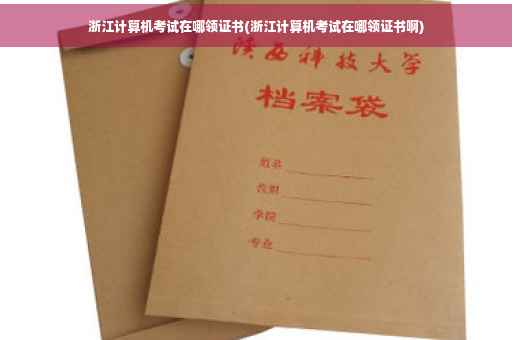 浙江计算机考试在哪领证书(浙江计算机考试在哪领证书啊)
陕西科技大学
档案袋
姓名
学院
专业